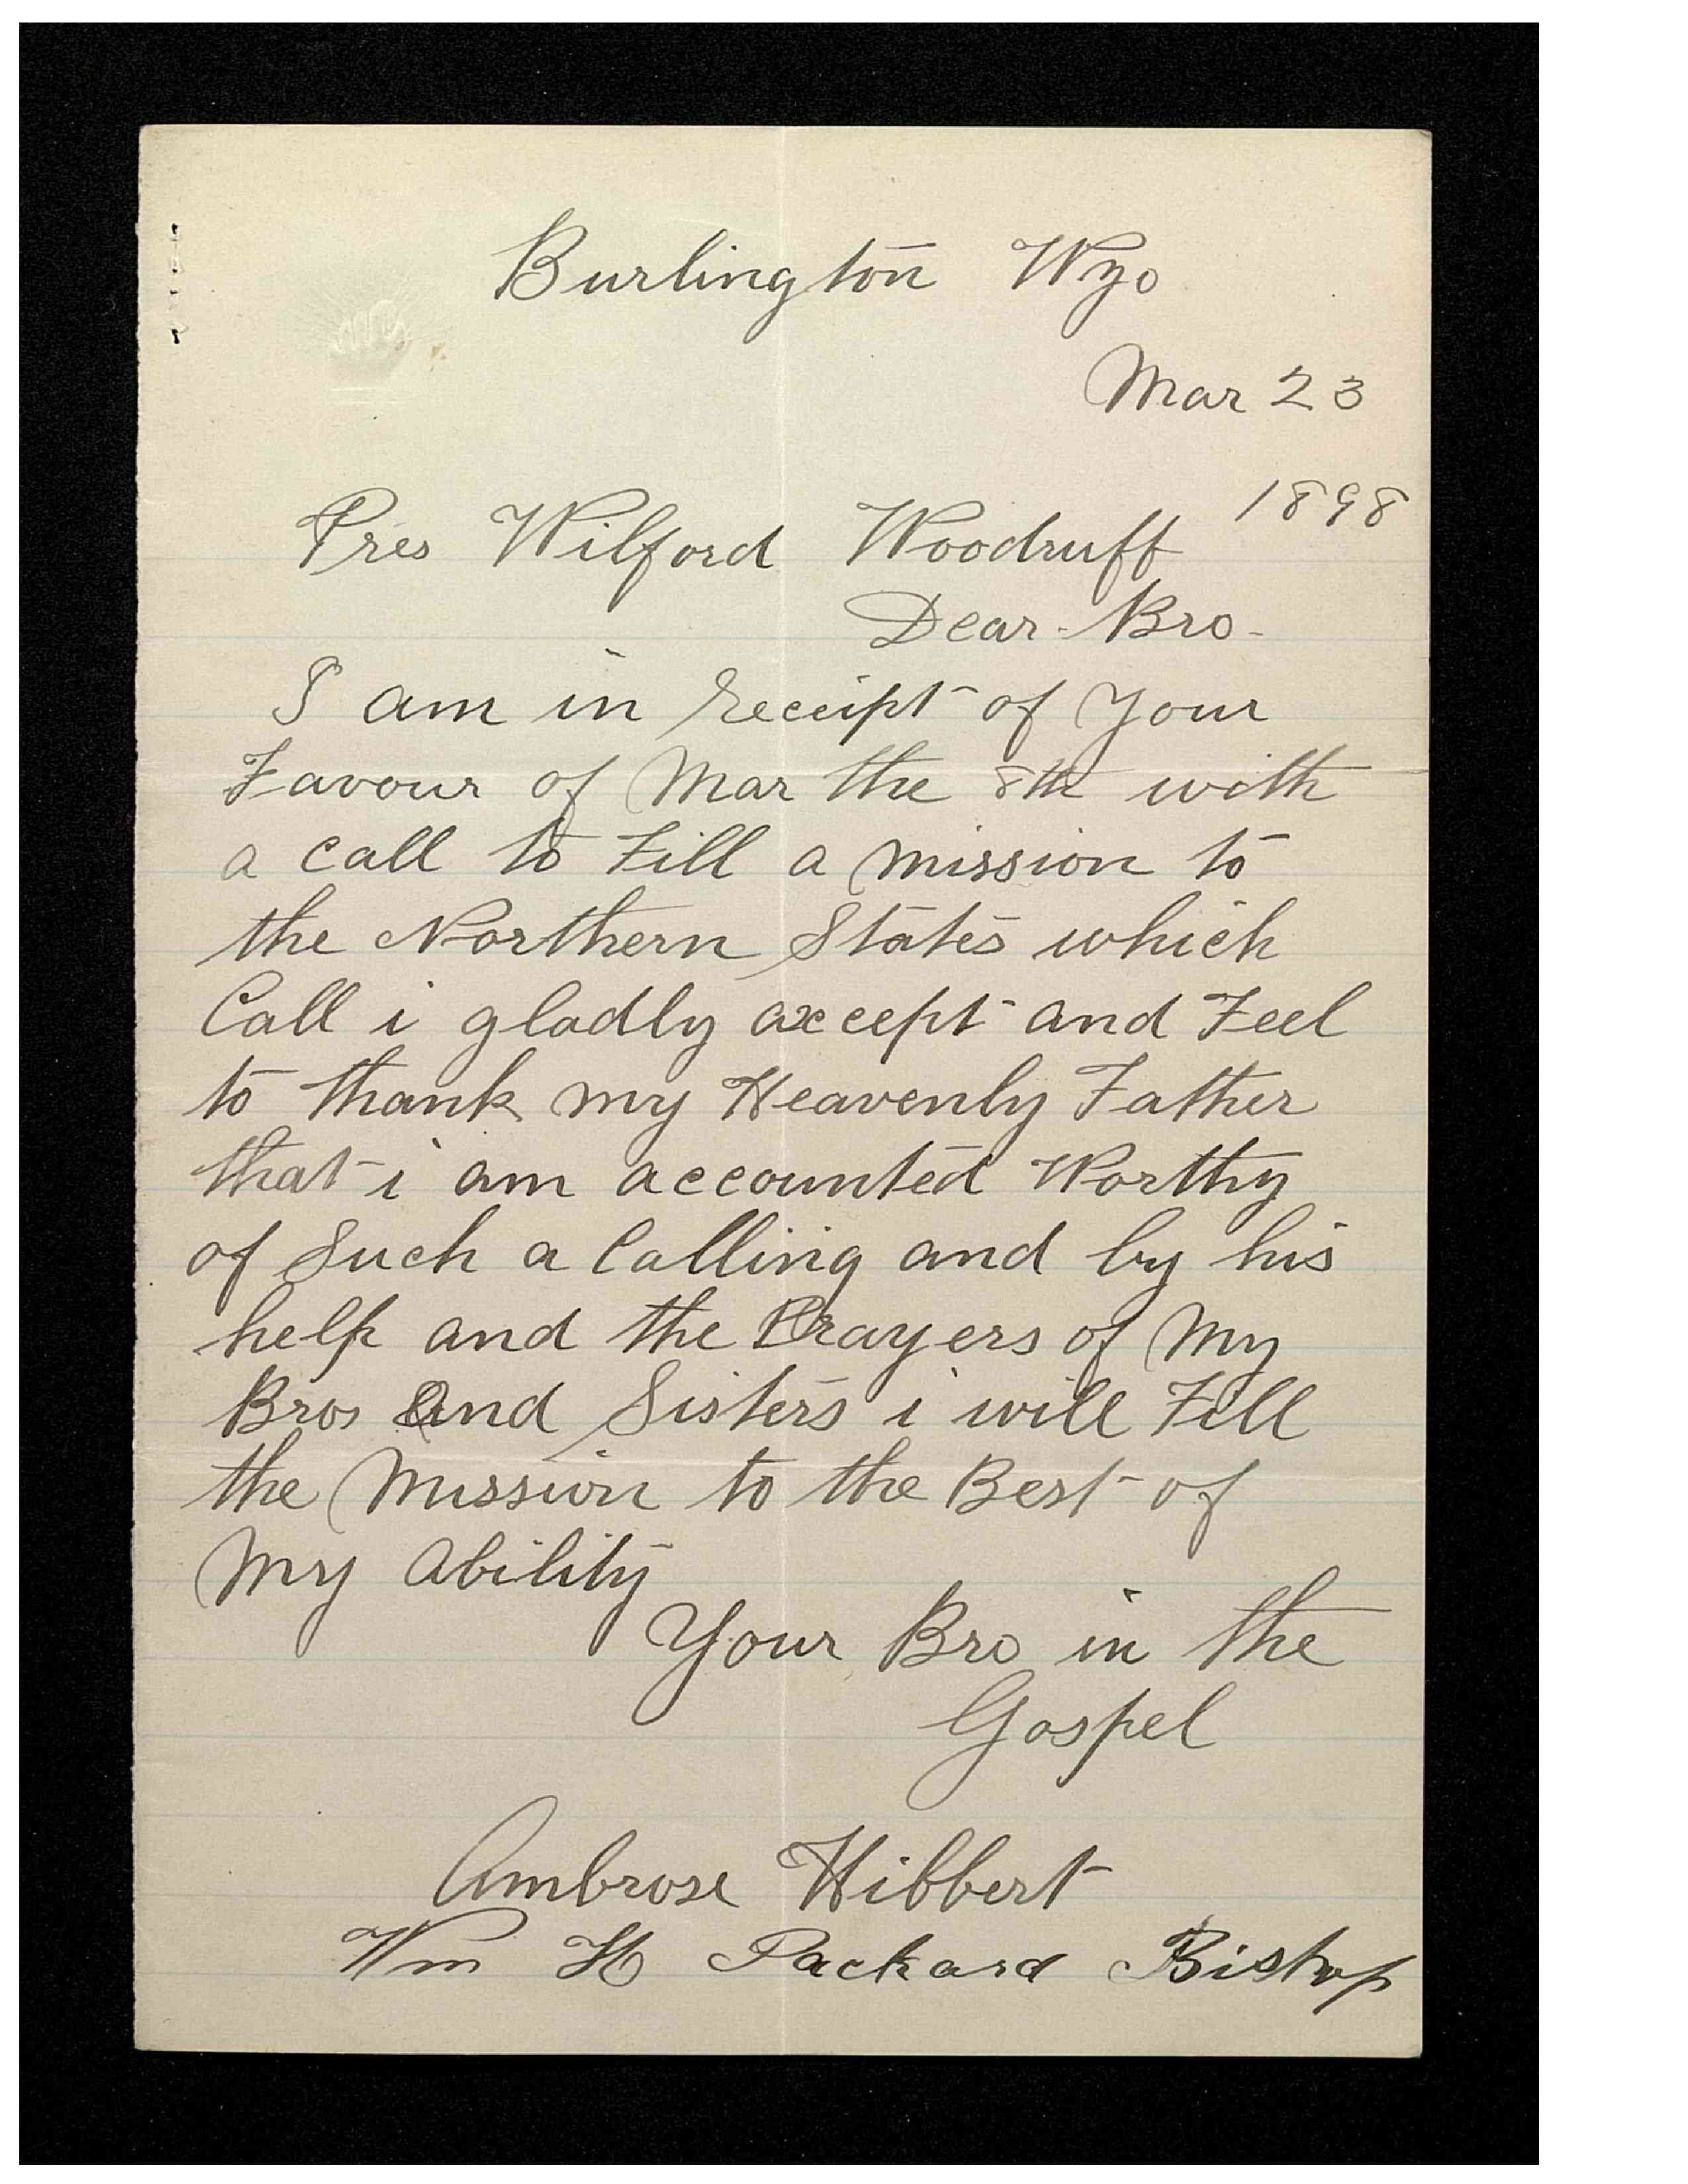 Burlington Wyo
Mar 23
1898
Pres Wilford Woodruff
Dear Bro-
I am in receipt of Your
Favour of Mar the 8th with
a call to Fill a mission to
the Northern States which
Call i gladly axcept and Feel
to thank my Heavenly Father
that i am accounted Worthy
of Such a Calling and by his
help and the Prayers of My
Bros And Sisters i will Fill
the Mission to the Best of
My Ability
Your Bro in the
Gospel
Ambrose Hibbert
Wm H Packard Bishop